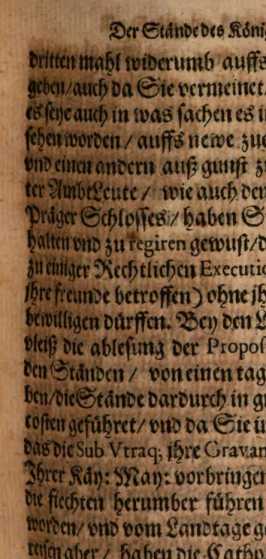 Der Stände des Köni
dritten mahl widerumb auffs
geben/auch da Sie vermeinet
es seye auch in was sachen es i
sehen worden / auffs newe zu
vnd einen andern auß gunst z
ter AmbtLeute / wie auch der
Präger Schlosses / haben S
halten vnd zu regiren gewust/d
zu einiger Rechtlichen Executio
ihre freunde betroffen) ohne ih
bewilligen dürffen. Bey den L
vleiß die ablesung der Propos
den Ständen / von einen tag
ben/die Stände dardurch in g
costen geführet/ vnd da Sie ü
das die Sub Vtraq; ihre Gravan
Ihrer Käy: May: vorbringen
die fiechten herumber führen
worden/ vnd vom Landtage g
reisen aber / haben die Catho